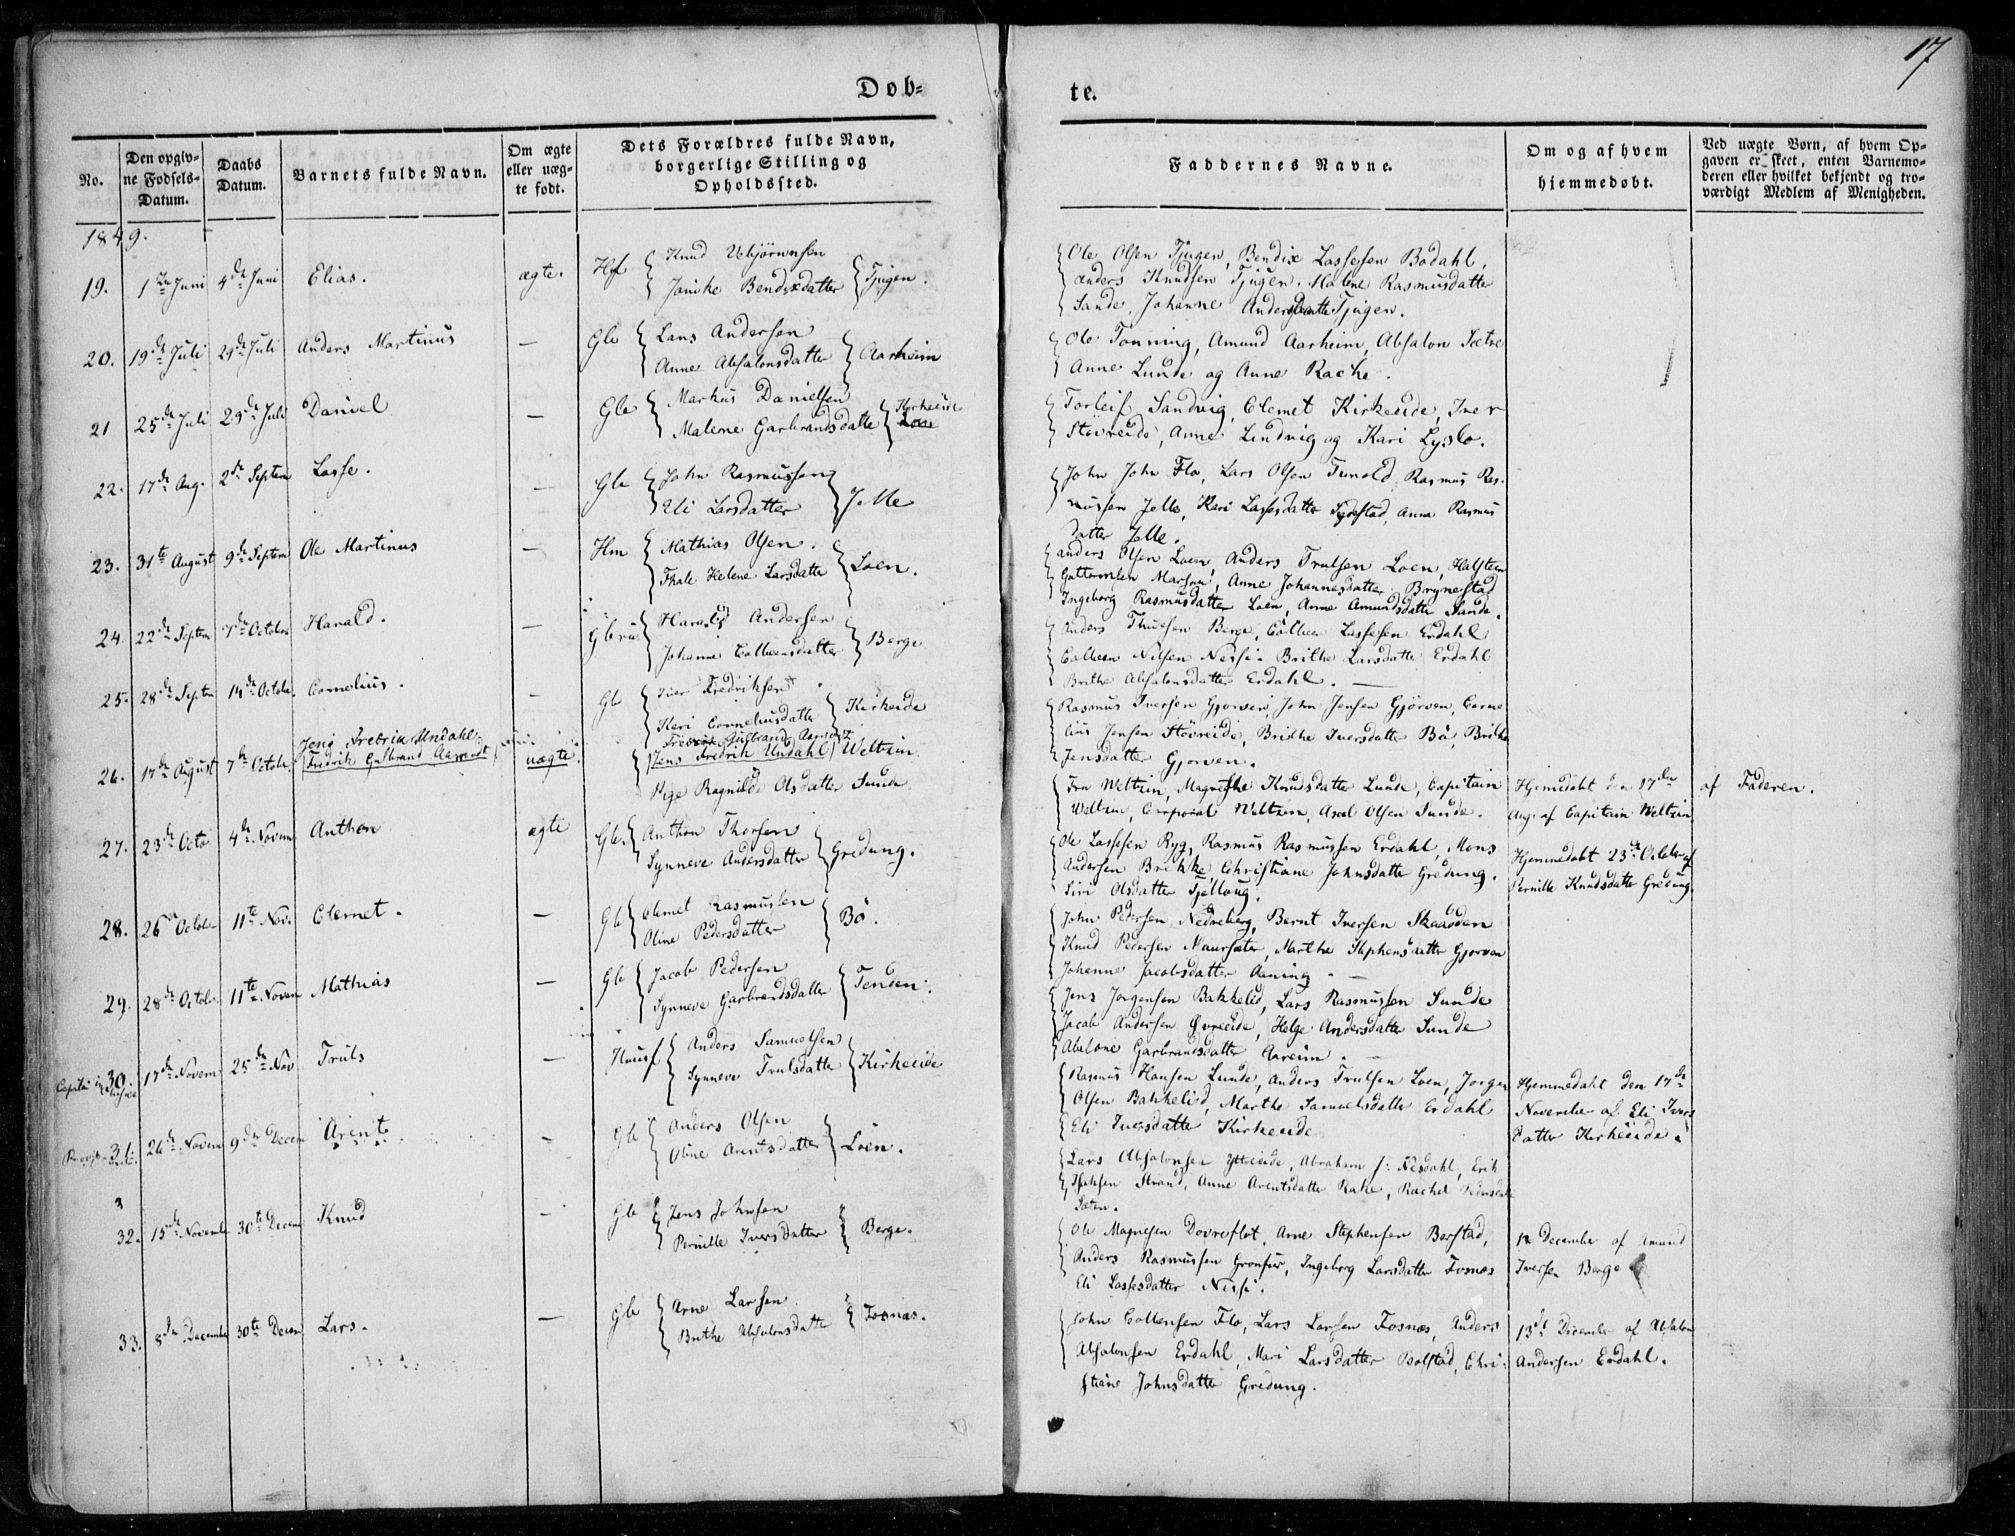 17
Døb=
te.
No.
Den opgiv-
ne Fødsels-
Datum.
Daabs
Datum.
Barnets fulde Navn.
Om ægte
eller uæg-
te født.
Dets Forældres fulde Navn,
borgerlige Stilling og
Opholdssted.
Faddernes Navne.
Om og af hvem
hjemmedøbt.
Ved uægte Børn, af hvem Op-
gaven er skeet, enten Barnemo-
deren eller hvilket bekjendt og tro-
værdigt Medlem af Menigheden.
1849.
19. 1ste Juni 4de Juni Elias. ægte. Hf
Knud Ubjørnsen
Janike Bendixdatter Tjugen.
Ole Olsen Tjugen, Bendix Lassesen Bødahl,
Anders Knudsen Tjugen, Malene Rasmusdatter
Sande, Johanne Andersdatte Tjugen.
20. 19de Juli 29de Juli Anders Martinus — Gb
Lars Andersen
Anne Absalonsdatte Aarheim
Ole Tonning, Amund Aarheim, Absalon Sætre
Anne Lunde og Anne Rache.
21 25de Juli 29de Juli Daniel — Gb
Markus Danielsen
Malene Garbrandsdatte Kirkeeide
Torleif Sandvig, Clemet Kirkeeide, Iver
Støvreide, Anne Lindvig og Kari Lyslo.
22. 17de Aug. 2de Septem Lasse. — Gb
John Rasmussen
Eli Larsdatter Jelle
John John Flo, Lars Olsen Tunold, Rasmus Ras-
mussen Jelle, Kari Lassesdatte Sydestad, Anna Rasmus
datter Jelle.
23. 31te August 9de Septem Ole Martinus — Hm
Mathias Olsen.
Thale Helene Larsdatte Loen.
Anders Olsen Loen, Anders Trulsen Loen, Halsten
Guttormsen Marsou, Anne Johannesdatter Brynestad
Ingeborg Rasmusdatter Loen, Anne Amundsdatte Sande.
24. 22de Septem 7de October Harald. — Gbru
Harald Andersen
Johanne Colbensdatter Berge
Anders Thuesen Berge, Colben Lassesen Erdahl
Colben Nilsen Nesse. Brithe Larsdatte Erdahl
Brithe Absalonsdatter Erdahl. —
25. 28de Septem 14de Octobr Cornelius. — Gb
Iver Fredriksen
Keri Corneliusdatte Kirkeide
Rasmus Iversen Gjørven, John Jensen Gjørven, Corne
lius Jensen Støvreide, Brithe Iversdatter Bø, Brithe
Jensdatter Gjørven.
26. 17de August 7de Octobr. Jens Fredrik Undahl
Fredrik Gulbrand Aamodt uægte.
Fredrik Gulbrand Aamodt
Jens Fredrik Undahl Weltzin
Pige Ragnilde Olsdatter Sunde
Fru Weltzin, Magnhilde Knudsdatte Lunde, Capitain
Weltzin, Corporal Weltzin, Axel Olsen Sunde.
Hjemedøbt den 17de
Aug. af Capitain Weltzin
af Faderen.
27. 23de Octo 4de Novem Anthon ægte Gb.
Anthon Thorsen
Synneve Andersdatter Gredung.
Ole Lassesen Ryg, Rasmus Rasmussen Erdahl, Mons
Andersen Brekke, Christiane Johnsdatte Gredung.
Siri Olsdatter Tjellaug.
Hjemmedøbt 23de October af
Pernille Knudsdatte Gredung.
28. 26de Octobr 11te Nov. Clemet. — Gb
Clemet Rasmussen
Oline Pedersdatter Bø.
John Pedersen Nedreberg, Bernt Iversen Skaadden
Knud Pedersen Maursæter, Marthe Stephensdatter Gjørven
Johanne Jacobsdatter Aaning. —
29. 28de Octob 11te Novem Mathias — Gb
Jacob Pedersen
Synneve Garbrandsdatte Tenden.
Jens Jørgensen Bakkelid, Lars Rasmussen Sunde
Jacob Andersen Øvreeide, Helge Andersdatter Sunde
Abelone Garbrandsdatter Aareim. —
30. 17de Novem 25de Nov Truls — Huusf
Anders Samuelsen
Synneve Trulsdatte Kirkeeide
Rasmus Hansen Lunde, Anders Trulsen Loen, Jørgen
Olsen Bakkelid, Marthe Samuelsdatte Erdahl
Eli Iversdatte Kirkeeide
Hjemmedøbt den 17de
November af Eli Ivers
datter Kirkeeide.
31. 26de Novem 9de Decem Arent — Gb
Anders Olsen
Oline Arentsdatter Loen.
Lars Absalonsen Ytreeide, Abraham J: Nesdahl, Erik
Strand, Anne Arentsdatte Rake, Rachel Pedersdat
Sæten.
3
32. 15de Novembe 30te Decem Knud — Gb
Jens Johnsen
Pernille Iversdatter Berge.
Ole Magnesen Dovreflot, Arne Stephensen Berstad,
Anders Rasmussen Gronfur, Ingeborg Larsdatte Fosnæs
Eli Lassesdatter Nesse.
12 December af Amund
Iversen Berge
33. 8de December 30te Decem Lars. — Gb
Arne Larsen
Brithe Absalonsdatte Fosnæs.
John Colbensen Flo, Lars Larsen Fosnæs, Anders
Absalonsen Erdahl, Mari Larsdatter Bolstad, Chri-
stiane Johnsdatte Gredung.
13de December af Absalon
Andersen Erdahl.